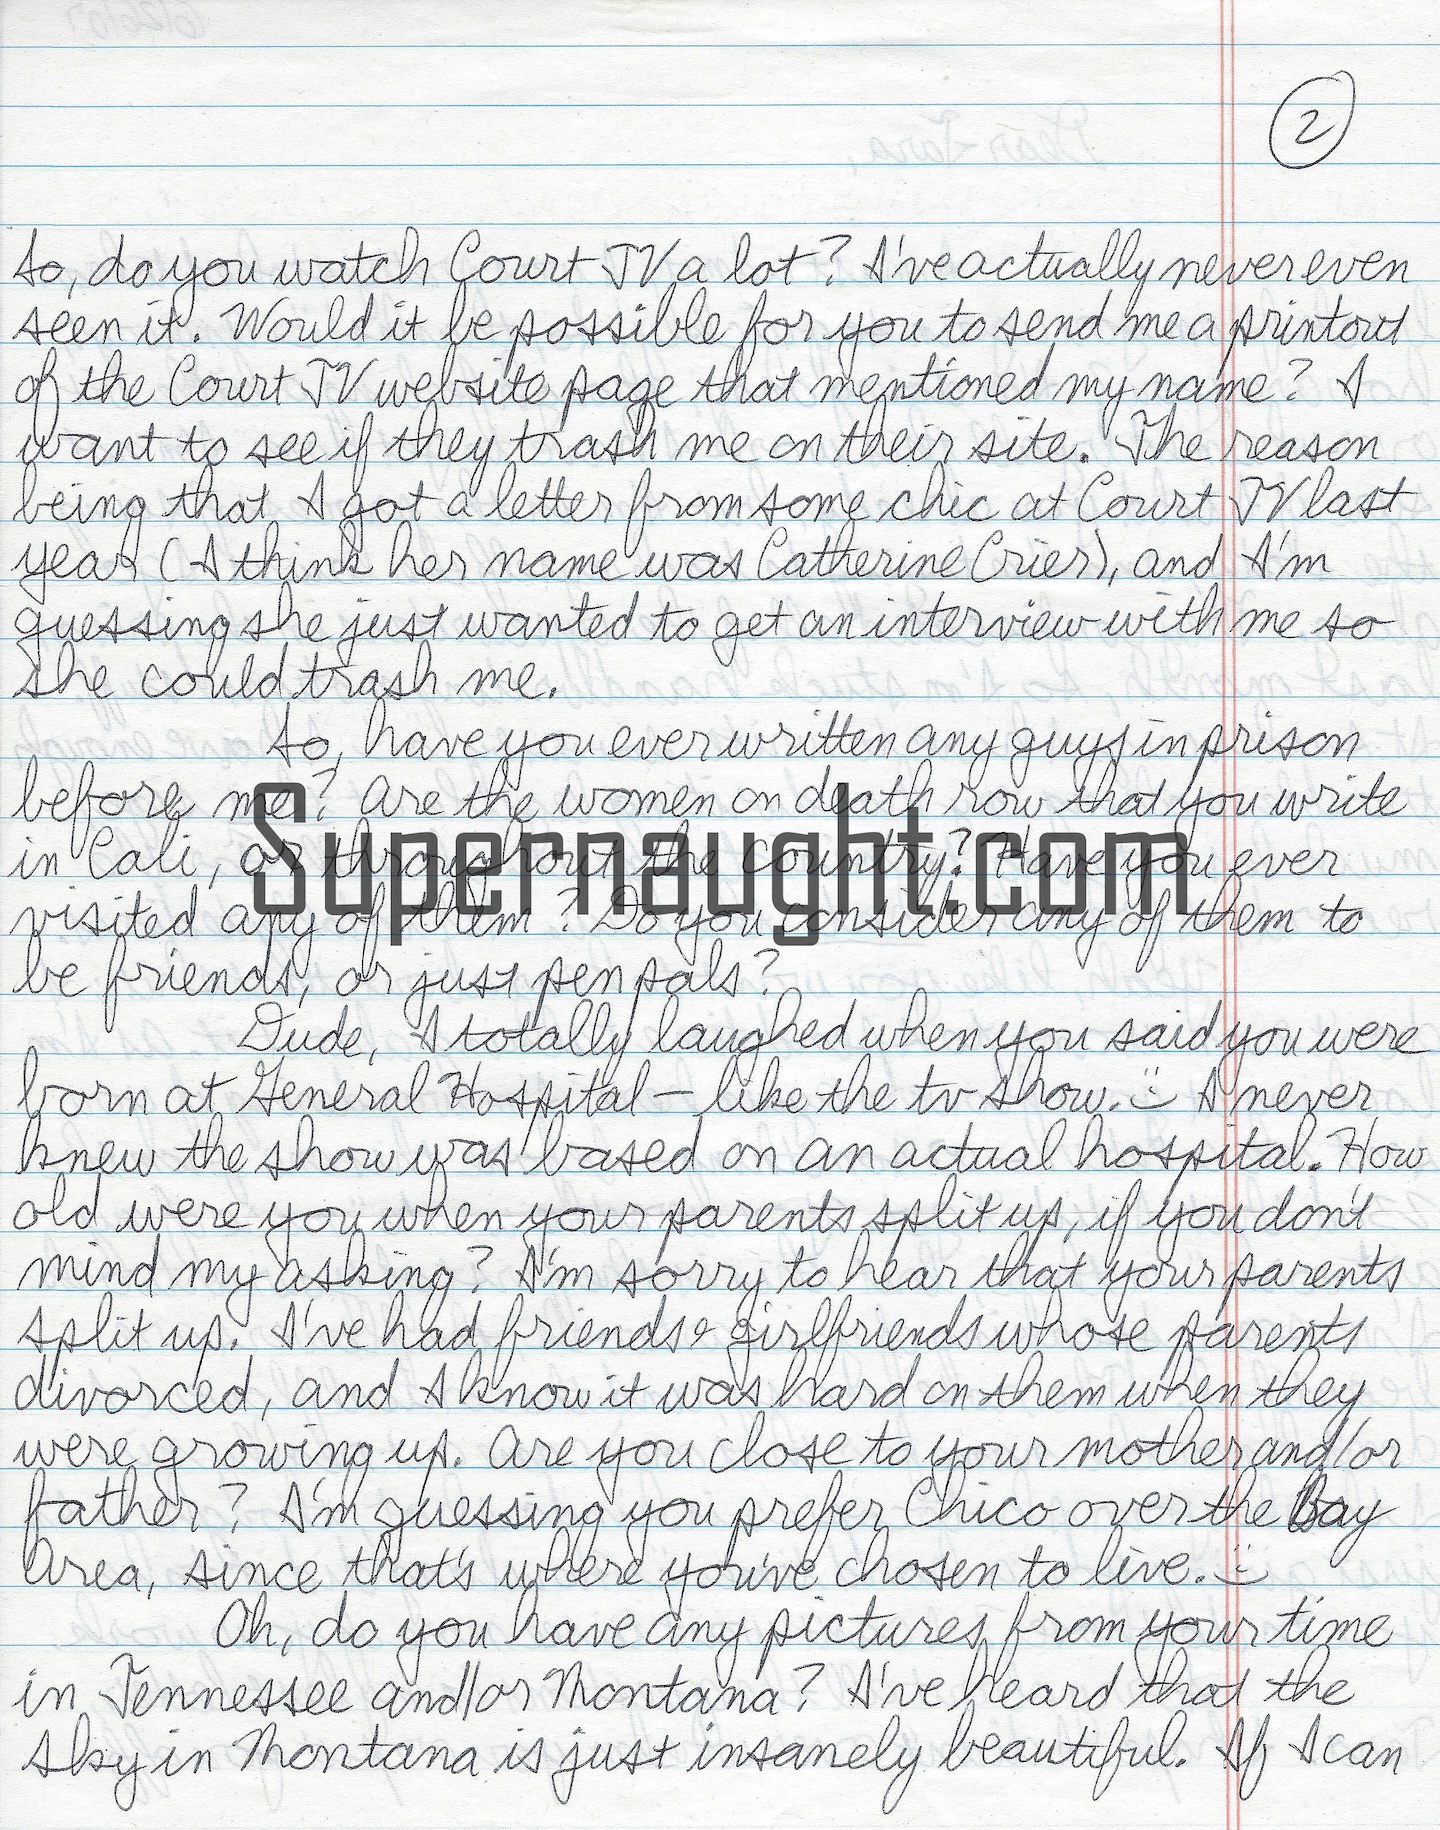 2
So, do you watch Court TV a lot? I've actually never even
seen it. Would it be possible for you to send me a printout
of the Court TV website page that mentioned my name? I
want to see if they trash me on their site. The reason
being that I got a letter from some chic at Court TV last
year (I think her name was Catherine Crier), and I'm
guessing she just wanted to get an interview with me so
she could trash me.
So, have you ever written any guys in prison
before me? Are the women on death row that you write
in Cali, or throughout the country? Have you ever
Supernaught.com
visited any of them? Do you consider any of them to
be friends, or just pen pals?
Dude, I totally laughed when you said you were
born at General Hospital – like the tv show. :) I never
knew the show was based on an actual hospital. How
old were you when your parents split up, if you don't
mind my asking? I'm sorry to hear that your parents
split up. I've had friends & girlfriends whose parents
divorced, and I know it was hard on them when they
were growing up. Are you close to your mother and/or
father? I'm guessing you prefer Chico over the Bay
Area, since that's where you've chosen to live. :)
Oh, do you have any pictures from your time
in Tennessee and/or Montana? I've heard that the
sky in Montana is just insanely beautiful. If I can